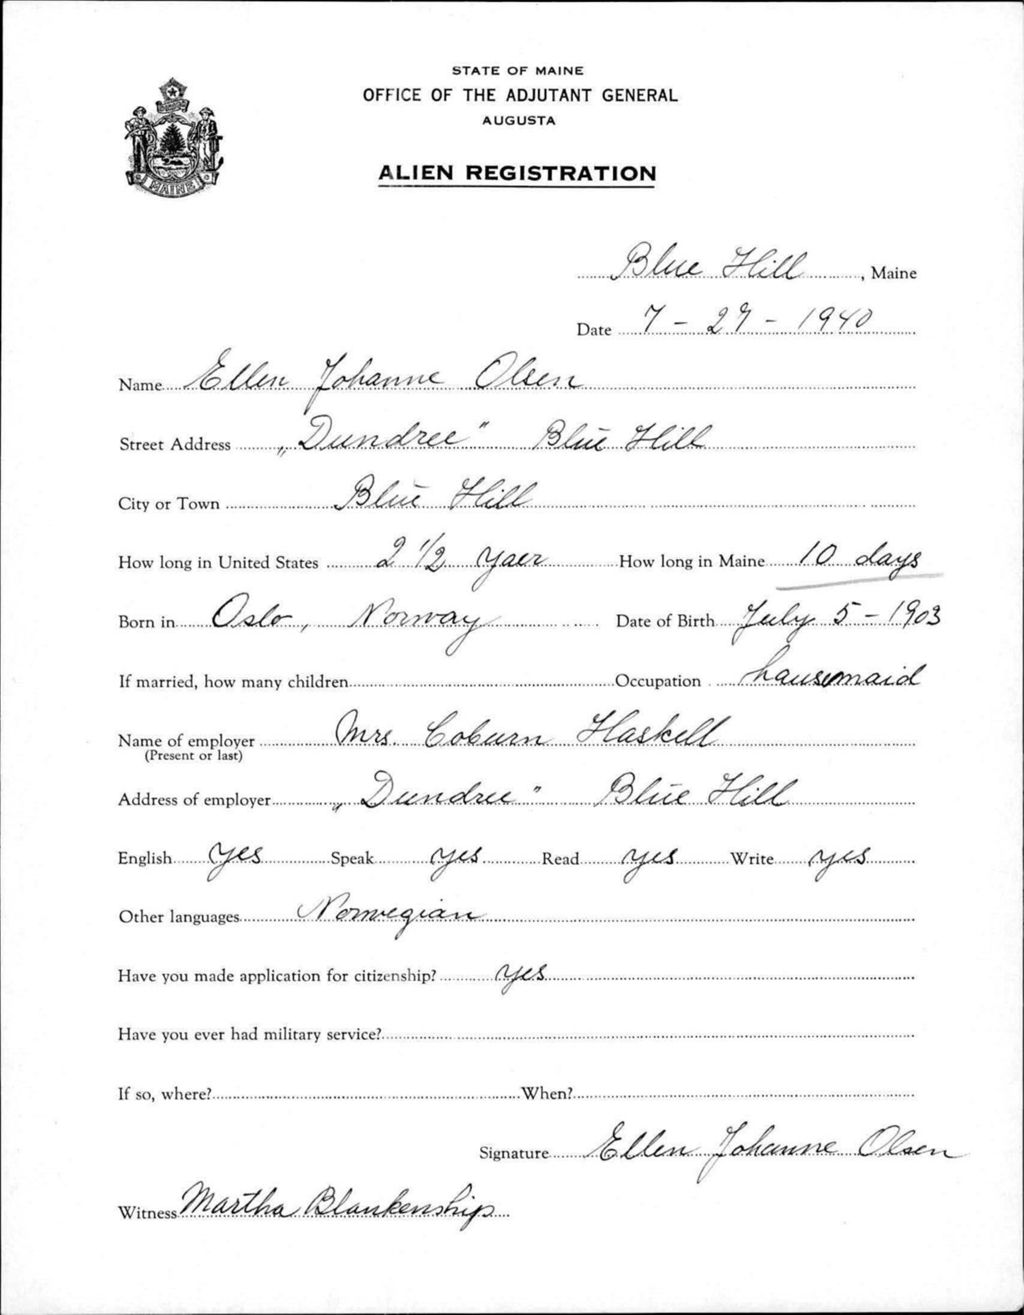 STATE OF MAINE
OFFICE OF THE ADJUTANT GENERAL
AUGUSTA
ALIEN REGISTRATION
MAINE
Blue Hill, Maine
Date 7 - 27 - 1940
Name Ellen Johanne Olsen
Street Address „Dundree" Blue Hill
City or Town Blue Hill
How long in United States 2 1/2 yaer How long in Maine 10 days
Born in Oslo, Norway Date of Birth July 5 - 1903
If married, how many children Occupation hausemaid
Name of employer Mrs. Coburn Haskell
(Present or last)
Address of employer „Dundree" Blue Hill
English yes Speak yes Read yes Write yes
Other languages Norwegian
Have you made application for citizenship? yes
Have you ever had military service?
If so, where? When?
Signature Ellen Johanne Olsen
Witness Martha Blankenship